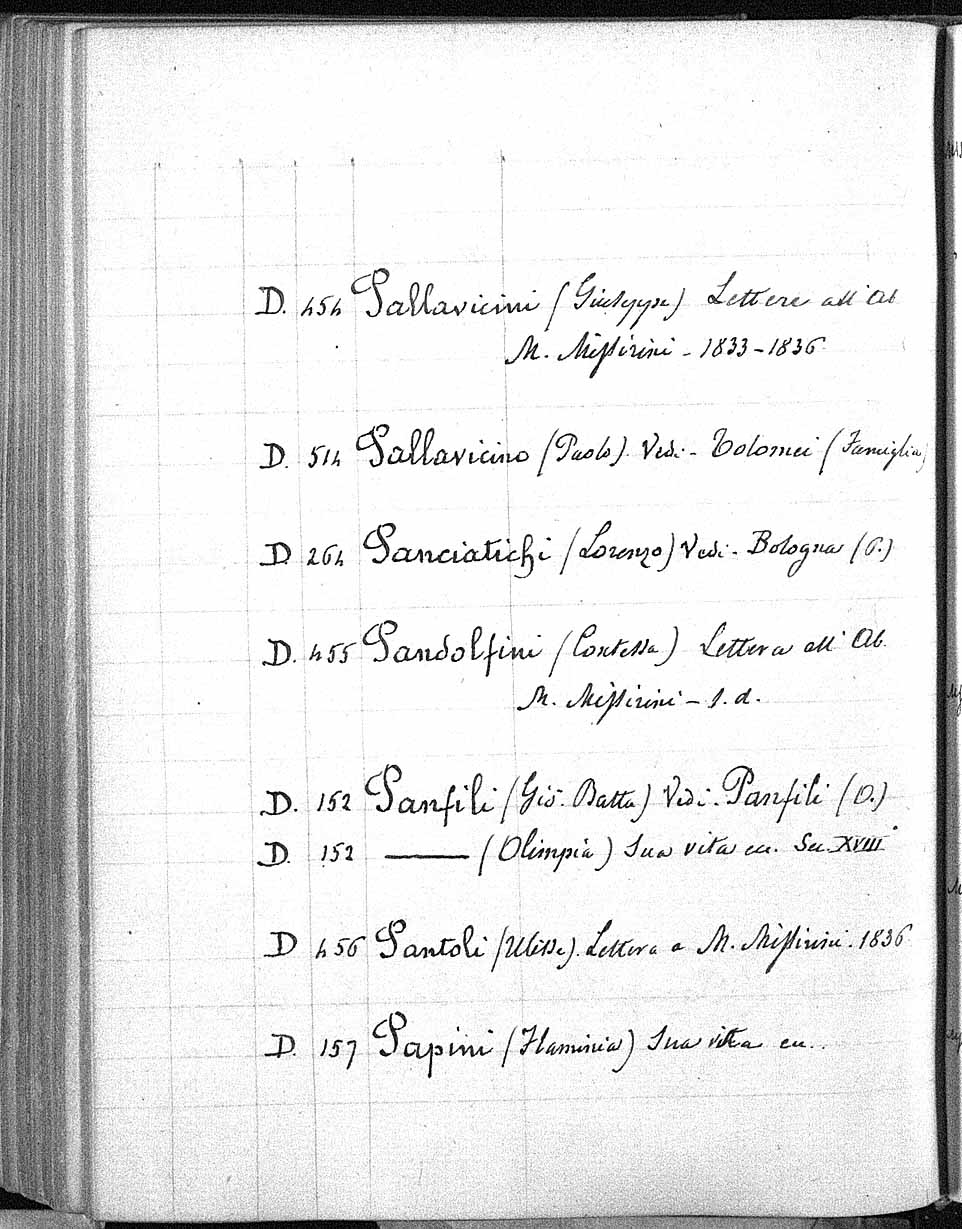 D. 454 Pallavicini (Giuseppe) Lettere all' Ab
M. Missirini - 1833-1836
D. 514 Pallavicino (Paolo). Vedi - Tolomei (Famiglia)
D 264 Panciatichi (Lorenzo) Vedi - Bologna (G.)
D. 455 Pandolfini (Contessa) Lettera all' Ab.
M. Missirini - s. d.
D. 152 Panfili (Gio. Batta) Vedi - Panfili (O.)
D. 152 ——— (Olimpia) Sua vita ec. Sec. XVIII°
D 456 Pantoli (Ulisse). Lettera a M. Missirini. 1836
D. 157 Papini (Flaminia) Sua vita ec..